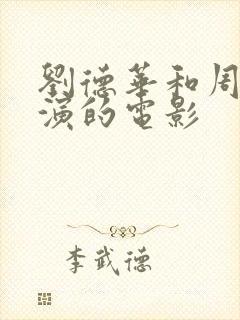 劉德華和周
演的電影
李武德